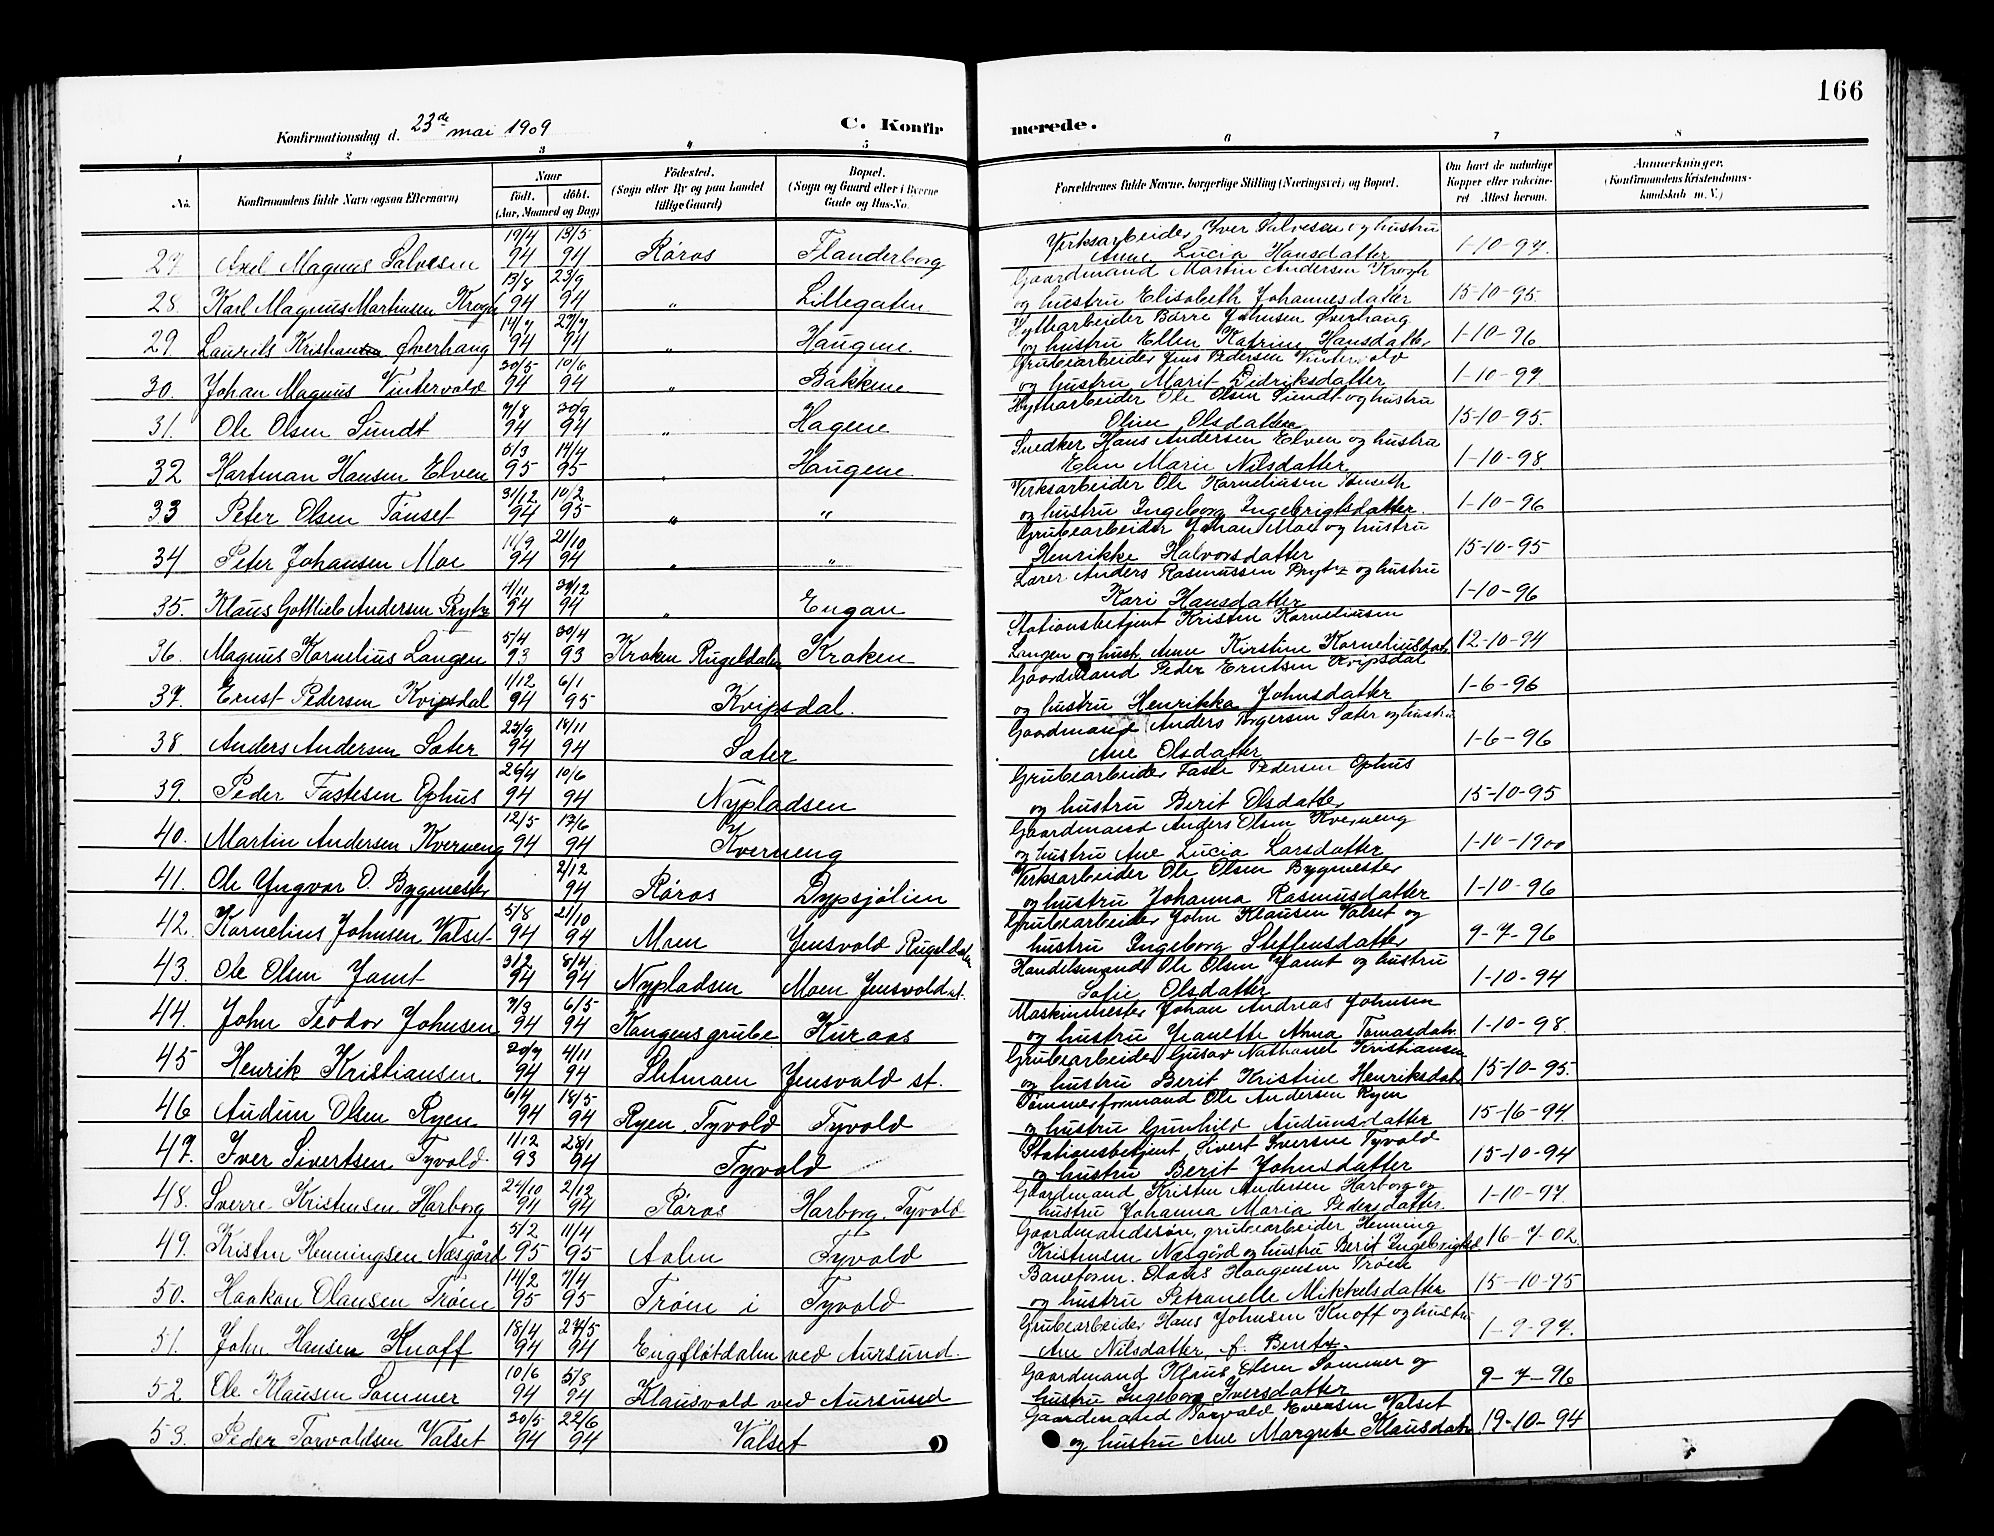 166
Konfirmationsdag d. 23de mai 1909
C. Konfirmerede.
1 2 3 4 5 6 7 8
No. Konfirmandens fulde Navn (ogsaa Efternavn) Naar født. døbt. (Aar, Maaned og Dag) Fødested. (Sogn eller By og paa Landet tillige Gaard) Bopæl. (Sogn og Gaard eller i Byerne Gade og Hus-No. Forældrenes fulde Navne, borgerlige Stilling (Næringsvei) og Bopæl. Om havt de naturlige Kopper eller vakcineret. Attest herom. Anmærkninger. (Konfirmandens Kristendomskundskab m. V.)
27 Axel Magnus Salvesen 19/4 94 13/5 94 Røros Flanderborg Verksarbeider Iver Salvesen og hustru
Anne Lucia Hansdatter 1-10-97.
28. Karl Magnus Martinsen Krogh 13/8 94 23/9 94 " Lillegaten Gaardmand Martin Andersen Krogh
og hustru Elisabeth Johannesdatter 15-10-95.
29. Laurits Kristian Øverhang 14/7 94 27/7 94 " Haugene. Hyttarbeider Børre Johnsen Øverhang
og hustru Ellen Katrine Hansdatter 1-10-96.
30. Johan Magnus Vintervold 20/5 94 10/6 94 " Bakkene Grubearbeider Jens Pedersen Vintervold
og hustru Marit Didriksdatter 1-10-97
31. Ole Olsen Sundt 7/8 94 30/9 94 " Hagene Hyttarbeider Ole Olsen Sundt og hustru
Oline Olsdatter 15-10-95.
32 Hartman Hansen Elven 6/3 95 14/4 95 Haugene. Snedker Hans Andersen Elven og hustru
Elen Marie Nilsdatter 1-10-98.
33 Peter Olsen Tønset 31/12 94 10/2 95 " " Verksarbeider Ole Korneliusen Tønseth
og hustru Ingeborg Ingebrigtsdatter. 1-10-96
34 Peter Johansen Moe 14/9 94 21/10 94 " " Grubearbeider Johan Moe og hustru
Henrikke Halvorsdatter 15-10-95
35. Klaus Gottlieb Andersen Prytz 4/11 94 30/12 94 " Engan Lærer Anders Rasmussen Prytz og hustru
Kari Hansdatter 1-10-96
36. Magnus Kornelius Langen 5/4 93 30/4 93 Kroken Rugeldalen Kroken Stationsbetjent Kristen Korneliusen
Langen og hust. Anne Kirstine Korneliusdatr 12-10-94
37. Ernst Pedersen Kvipsdal 1/12 94 6/1 95 Kvipsdal. Gaardmand Peder Erntsen Kvipsdal
og hustru Henrikka Johnsdatter 1-6-96
38. Anders Andersen Sæter 23/9 94 18/11 94 Sæter Gaardmand Anders Borgersen Sæter og hustru
Ane Olsdatter 1-6-96
39. Peder Fastesen Ophus 26/4 94 10/6 94 Nypladsen Grubearbeider Faste Pedersen Ophus
og hustru Berit Olsdatter 15-10-95
40. Martin Andersen Kverneng 12/5 94 17/6 94 Kverneng Gaardmand Anders Olsen Kverneng
og hustru Ane Lucia Larsdatter 1-10-1900
41. Ole Yngvar O. Bygmester 2/12 94 Røros Dypsjølien Verksarbeider Ole Olsen Bygmester
og hustru Johanna Rasmusdatter 1-10-96
42. Kornelius Johnsen Valset 5/8 94 21/10 94 Moen Jensvold Rugeldalen Grubearbeider John Klausen Valset og
hustru Ingeborg Steffensdatter 9-7-96
43. Ole Olsen Jamt 3/2 94 8/4 94 Nypladsen Moen Jensvold st. Handelsmand Ole Olsen Jamt og hustru
Sofie Olsdatter 1-10-94
44. John Teodor Johnsen 7/3 94 6/5 94 Kongens grube Kuraas Maskinmester Johan Andreas Johnsen
og hustru Jeanette Anna Tomasdatr 1-10-98.
45 Henrik Kristiansen 20/9 94 4/11 94 Sletmoen Jensvold st. Grubearbeider Gusav Nathanael Kristiansen
og hustru Berit Kristine Henriksdatr 15-10-95.
46 Audun Olsen Ryen 6/4 94 18/5 94 Ryen, Tyvold Tyvold Tømmerformand Ole Andersen Ryen
og hustru Gunhild Audunsdatter 15-16-94.
47. Iver Sivertsen Tyvold. 1/12 93 28/1 94 Tyvold Stationsbetjent Sivert Iversen Tyvold
og hustru Berit Johnsdatter 15-10-94
48. Sverre Kristensen Harborg 24/10 94 2/12 94 Røros Harborg. Tyvold Gaardmand Kristen Andersen Harborg og
hustru Johanna Maria Pedersdatter. 1-10-97.
49. Kristen Henningsen Næsgård 5/2 95 11/4 95 Aalen Tyvold Gaardmandssøn, grubearbeider Henning
Kristensen Næsgård og hustru Berit Ingebrigtsd. 16-7-02.
50. Haakon Olausen Trøen 14/2 95 7/4 95 Trøen i Tyvold Baneform. Olaus Haagensen Trøen
og hustru Petranelle Mikkelsdatter 15-10-95
51. John Hansen Knoff 18/4 94 27/5 94 Engfløtdalen ved Aursund. Grubearbeider Hans Johnsen Knoff og hustru
Ane Nilsdatter, f. Bentz. 1-9-97.
52. Ole Klausen Sommer 10/6 94 5/8 94 Klausvold ved Aursund Gaardmand Klaus Olsen Sommer og
hustru Ingeborg Iversdatter 9-7-96
53. Peder Torvaldsen Valset 20/5 94 22/6 94 Valset Gaardmand Torvald Evensen Valset
og hustru Ane Margrete Klausdatr 19-10-94